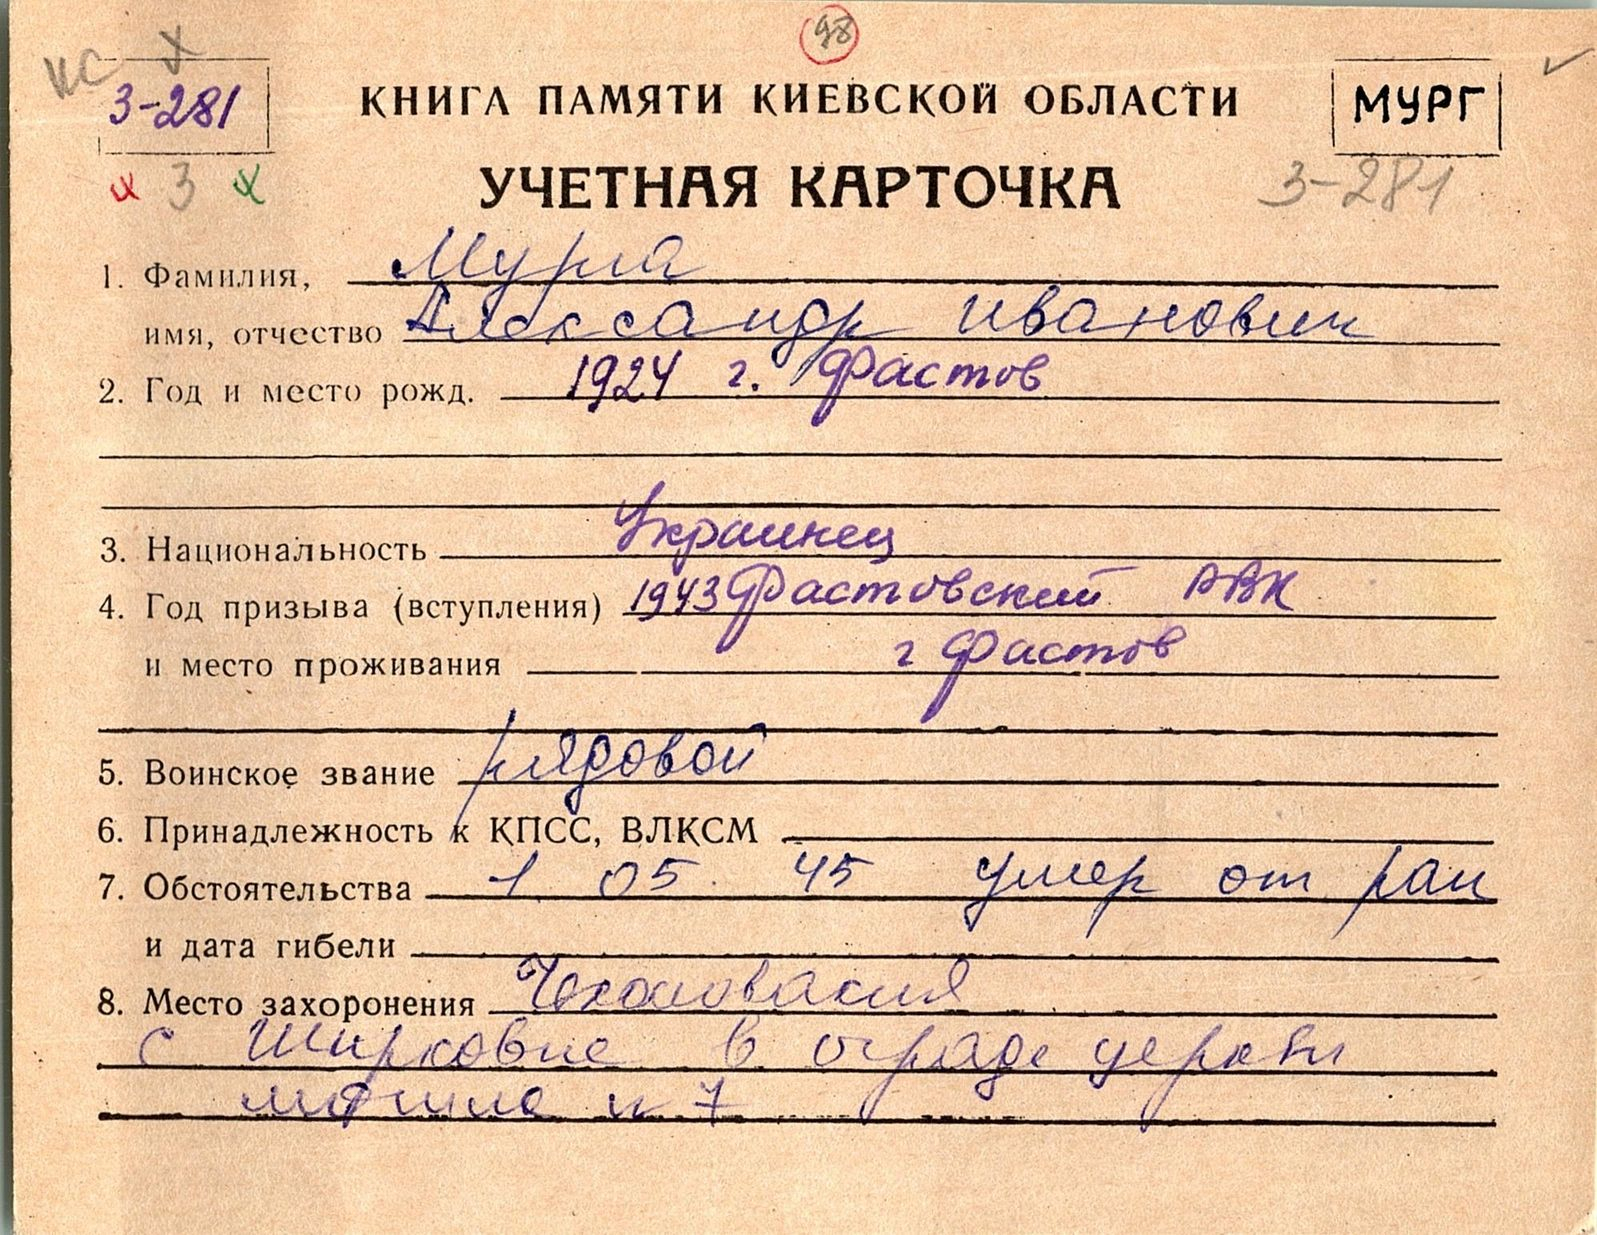 КС Х
98
3-281
КНИГА ПАМЯТИ КИЕВСКОЙ ОБЛАСТИ
МУРГ
х 3 х
УЧЕТНАЯ КАРТОЧКА
3-281
1. Фамилия, Мурга
имя, отчество Александр Иванович
2. Год и место рожд. 1924 г. Фастов
3. Национальность Украинец
4. Год призыва (вступления) 1943 Фастовский РВК
и место проживания г Фастов
5. Воинское звание рядовой
6. Принадлежность к КПСС, ВЛКСМ
7. Обстоятельства 1 05 45 умер от ран
и дата гибели
8. Место захоронения
с в ограде церкви
могила н 7